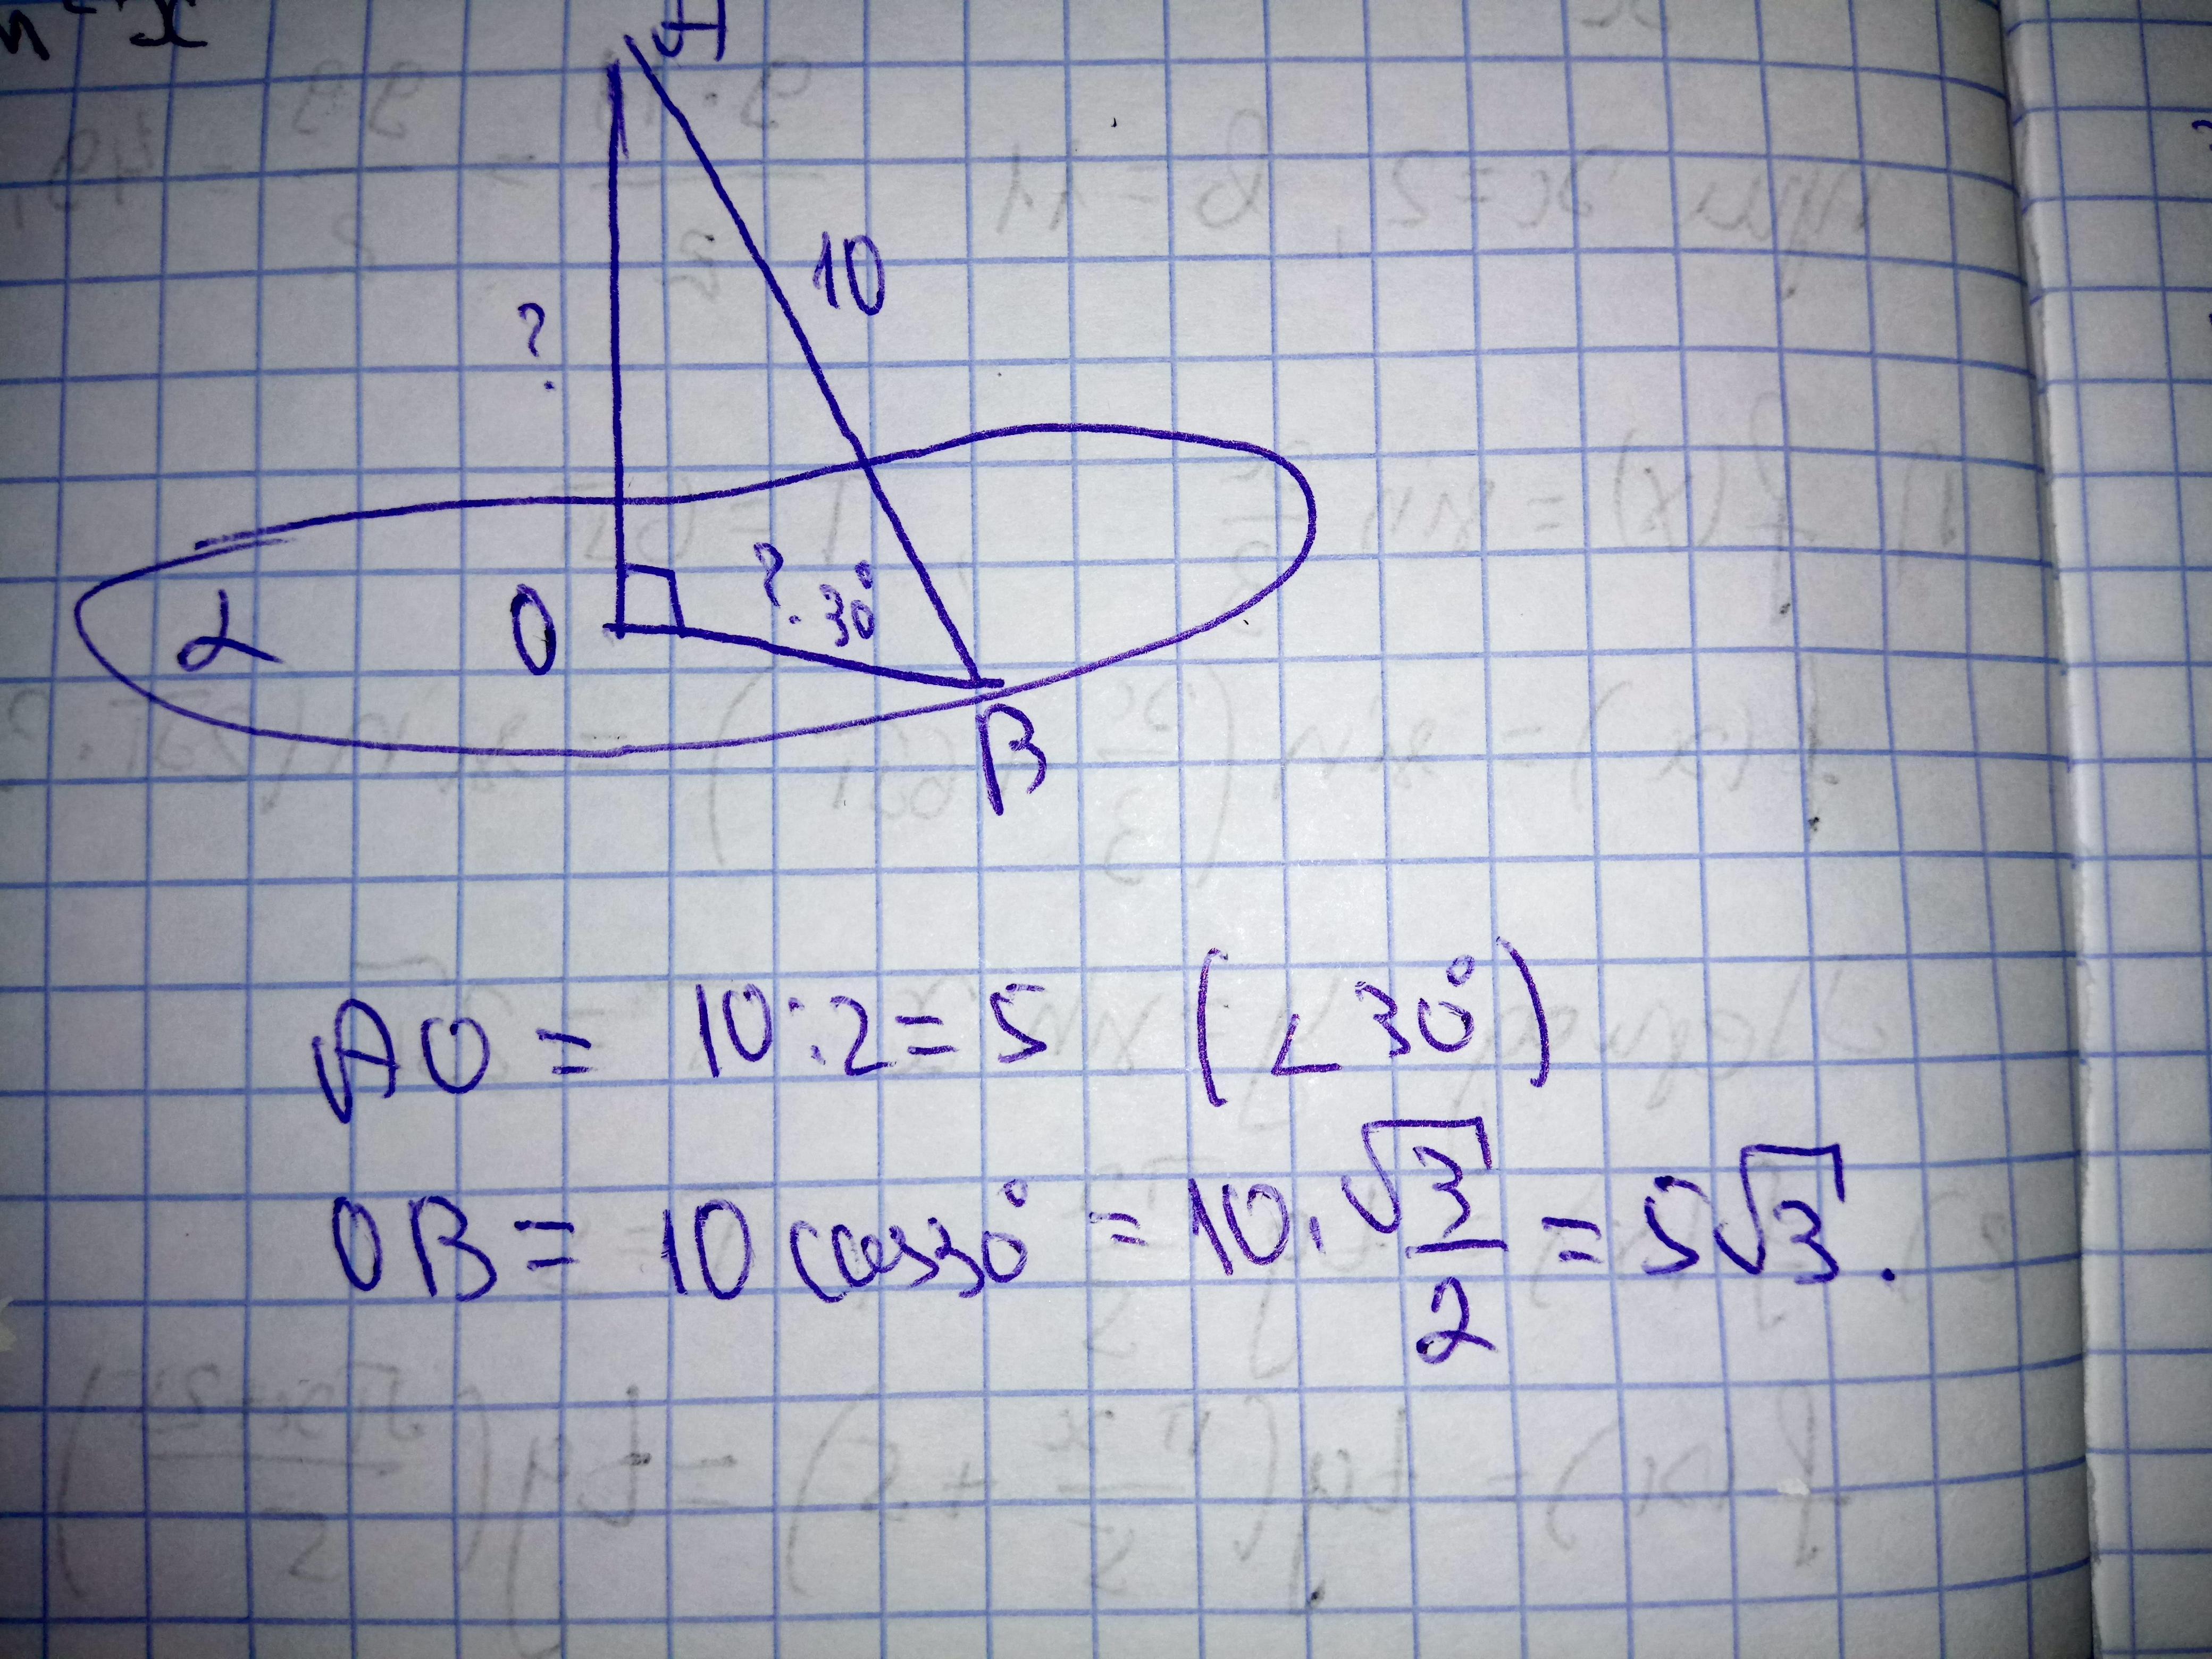 A
10
?
? 30°
α O
B
AO = 10:2=5 (∠30°)
OB = 10 cos30° = 10·√3/2 = 5√3.